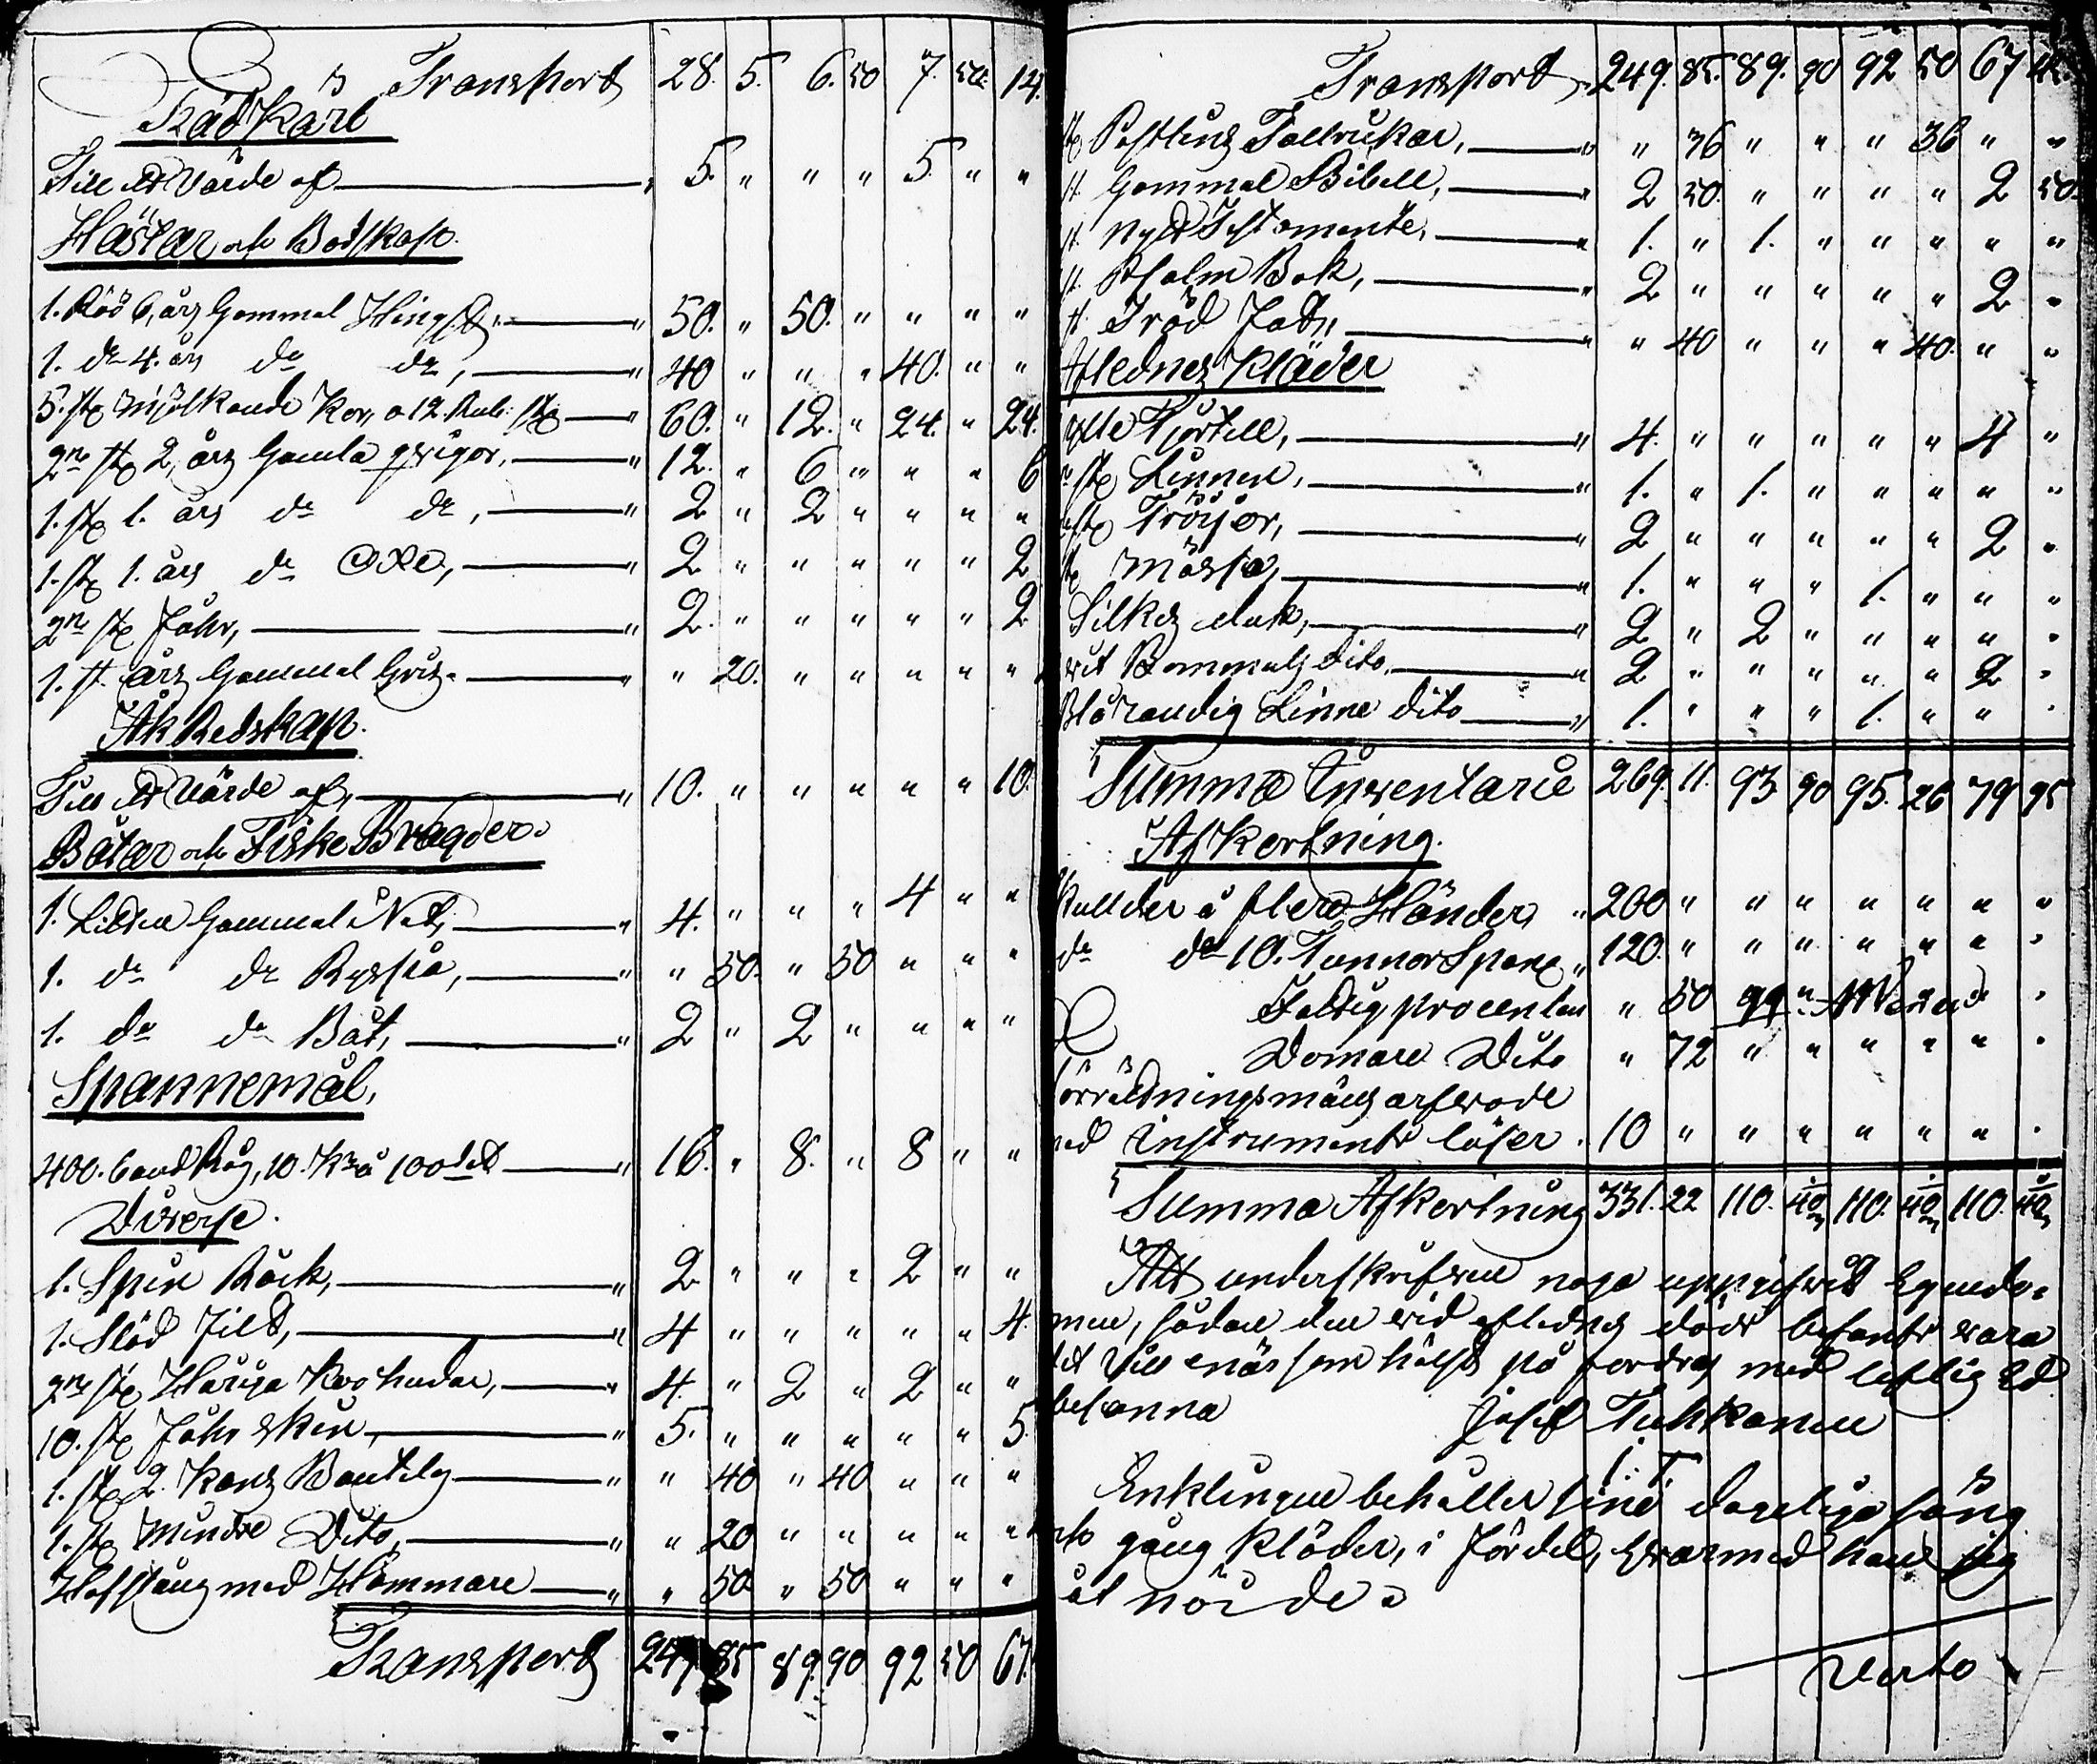 Transport 28. 5. 6. 50 7. 50. 14.
Träd Kärl
Till ett Värde af " 5. " " " 5. " "
Hästar och Bodskap.
1. Röd 6, års Gammal Hingst, " 50. " 50. " " " "
1. do 4. års do do, " 40 " " " 40. " "
5. st. Mjölkande Kor, a 12. Rub. st. " 60. " 12. " 24. " 24.
2ne st. 2, års Gamla qvigor, " 12. " 6 " " " 6
1. st. 1. års do do, " 2 " 2 " " " "
1. st. 1. års do Oxe, " 2 " " " " " 2
2ne st. Fåhr, " 2. " " " " " 2
1. st. års Gammal Gris. " " 20. " " " " "
Åk Redskap.
Till ett Värde af, " 10. " " " " " 10.
Båtar och Fiske Bragder.
1. Liten Gammal Not, " 4. " " " 4 " "
1. do do Ryssja, " " 50. " 50 " " "
1. do do Båt, " 2 " 2 " " " "
Spannemål,
400. band Råg, 10. Kr a 100det " 16. " 8. " 8 " "
Diverse.
1. Spin Råck, " 2 " " " 2 " "
1. Slöd " 4 " " " " " 4.
2ne st. Kohudar, " 4. " 2 " 2 " "
10. st. Fåhr skin, " 5. " " " " " 5.
1. st. 2. Kans Boutelj " " 40 " 40 " " "
1. st. Mindre Dito, " " 20 " " " " "
Hofstång med Hammare " " 50 " 50 " " "
Transport 249 85 89. 90 92 50 67.
Transport, 249. 85. 89. 90 92 50 67 45.
st. Postlins Tallrickar, " " 36 " " " 36 " "
st. Gammal Bibell, " 2 50. " " " " 2 50.
st. Nytt Testamente, " 1. " 1. " " " " "
st. Psalm Bok, " 2 " " " " " 2 "
st. " " 40 " " " 40. " "
Aflednes Kläder
Kjortell, " 4. " " " " " 4 "
st. Linnen, " 1. " 1. " " " " "
st. Tröijor, " 2 " " " " " 2 "
st. Mössa, " 1. " " " 1. " " "
Silkes duk, " 2 " 2 " " " " "
Bommuls dito, " 2 " " " " " 2 "
Blårandig Linne dito " 1. " " " 1. " " "
Summa Inventarie 269. 11. 93 90 95. 26 79 95
Afkortning.
Skullder å flera Händer " 200 " " " " " " "
do do 10. Tunnor Spanm. " 120. " " " " " " "
Fattig procenten " 50
Domare Dito " 72 " " " " " "
örrättningsmäns arfwode
med instruments löser. 10 " " " " " " "
Summa Afkortning 331. 22 110. 110. 110.
Att underskrifven noga uppgifwit Egendo-
men, sådan den vid aflednes död befants vara
det vill enär som hälst på fordras med liflig Ed
besanna Josef Tuhkanen
I. T.
Enklingen behåller sine dagelige säng
och gång kläder, i fördel, hvarmed han sig
åt nöide.
Verto